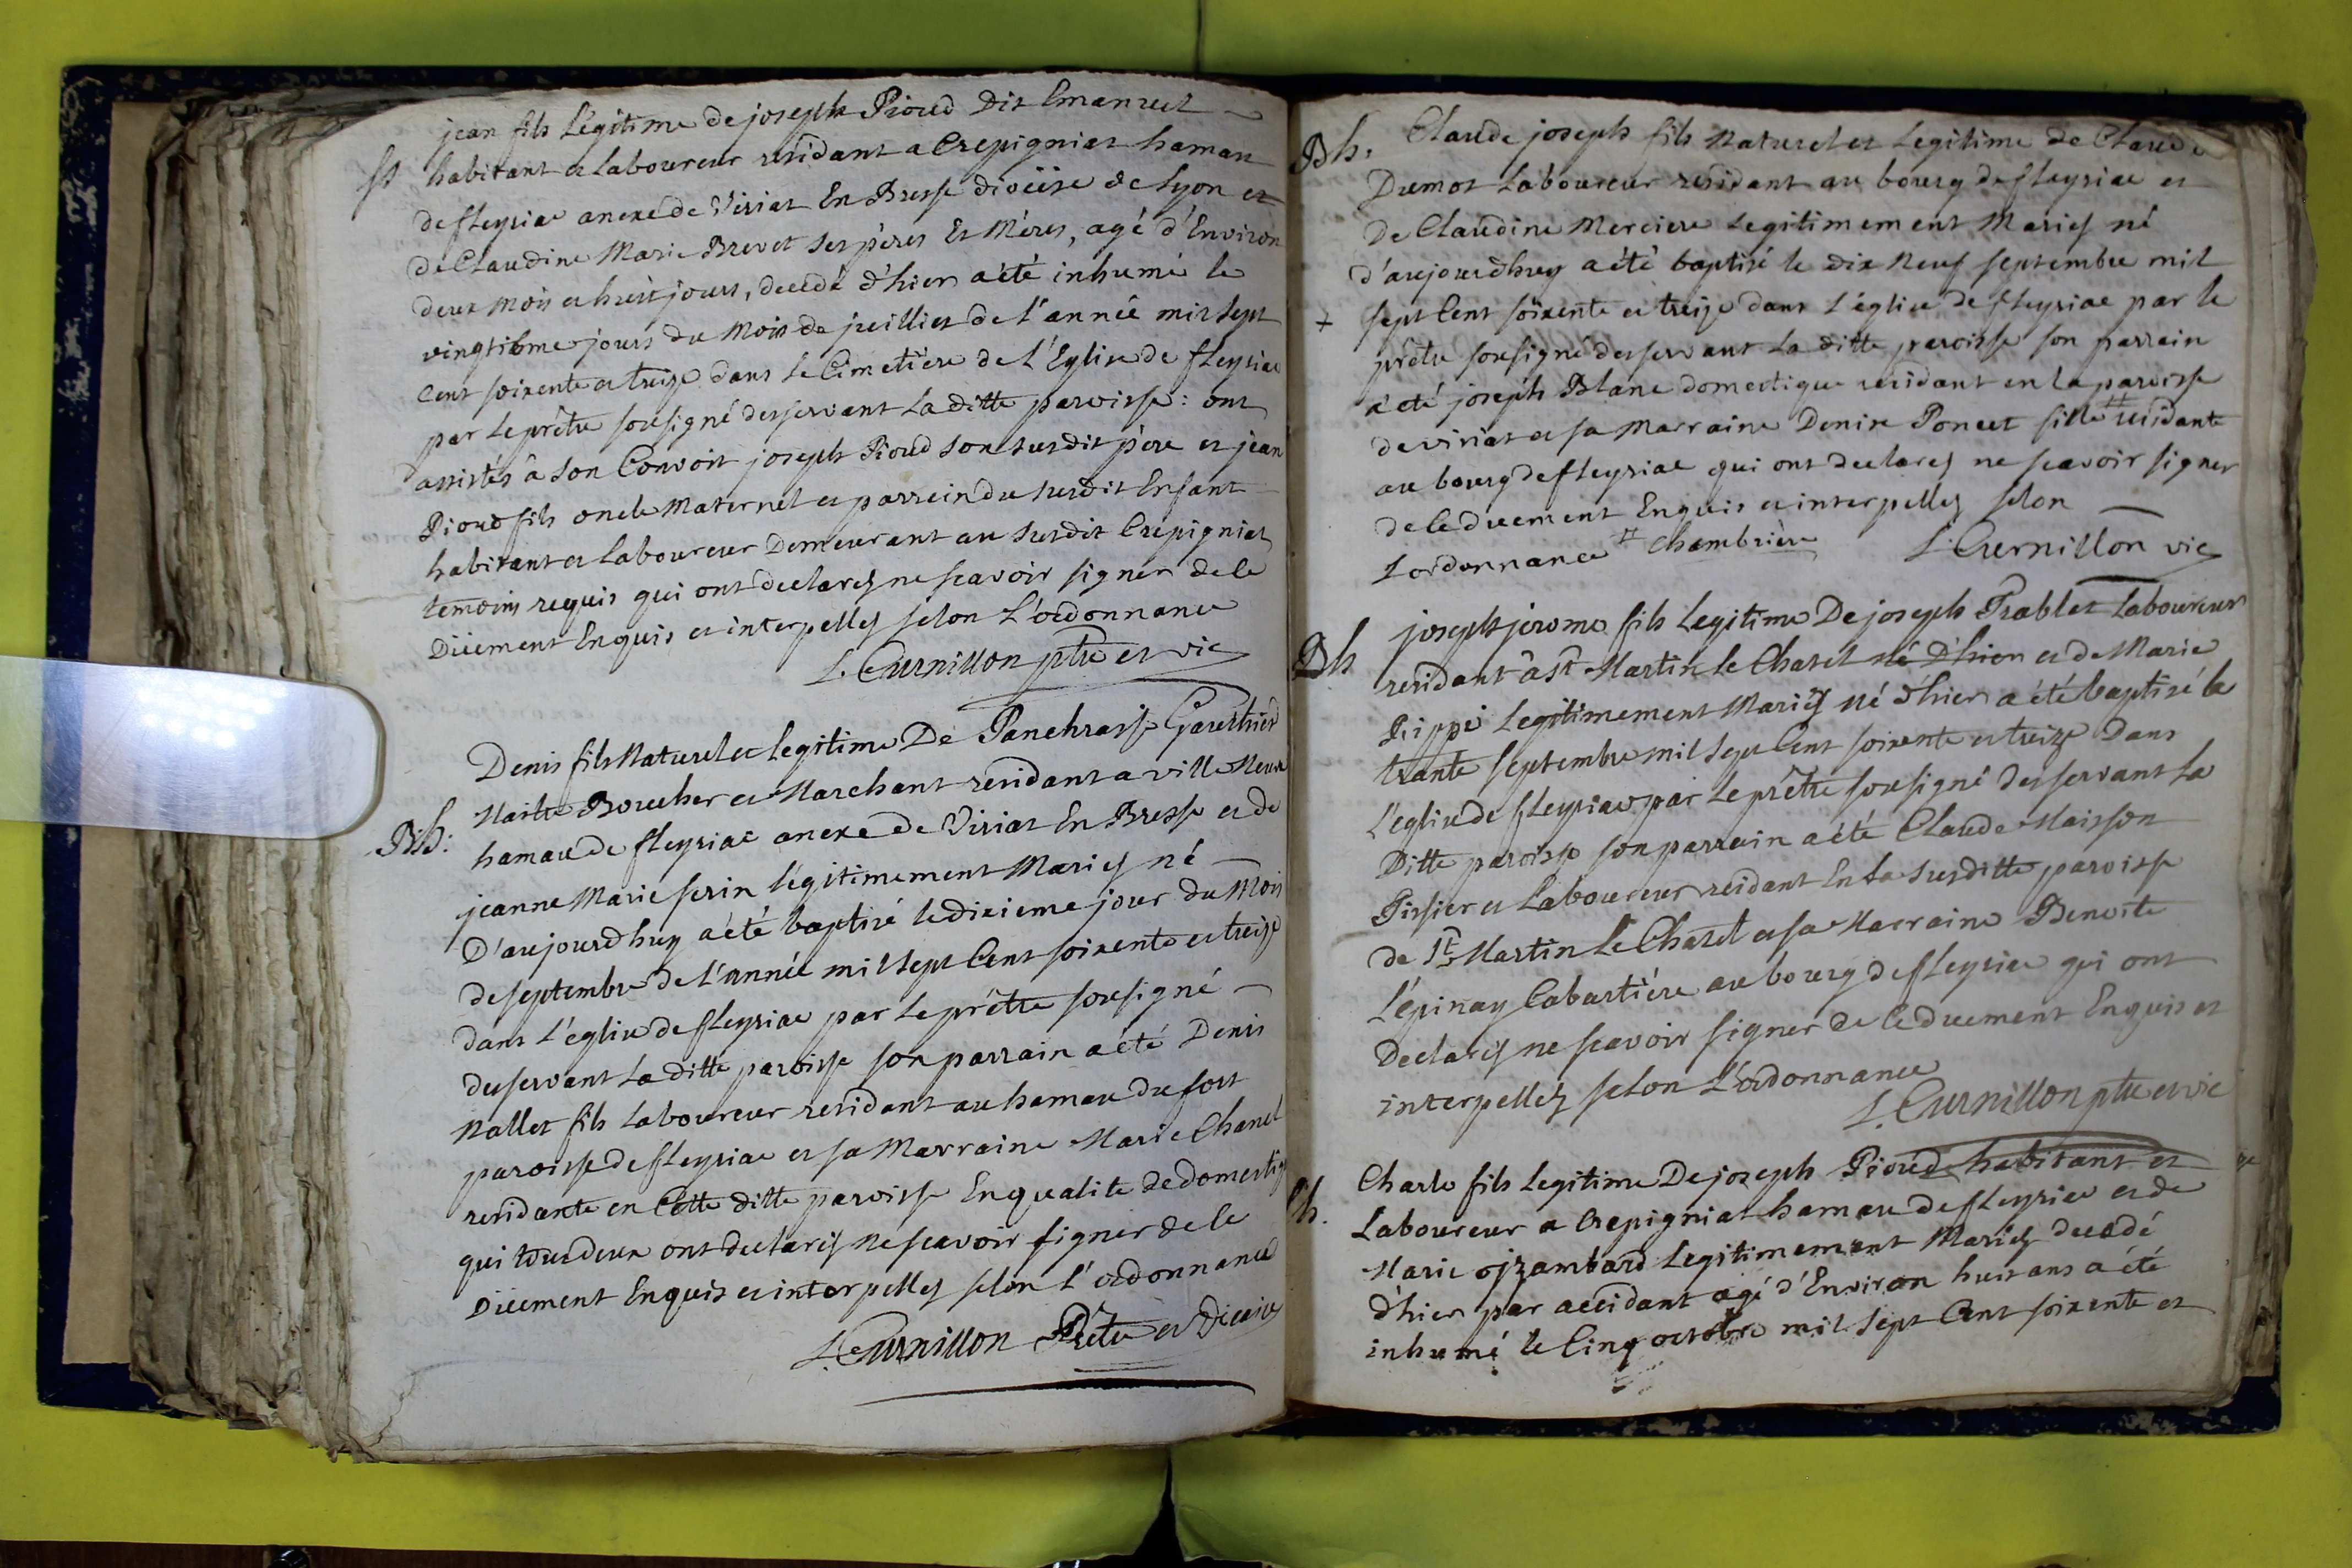 jean fils Légitime de joseph Pioud Dit Emanuel
St habitant et Laboureur residant a Crepigniat hamau
de fleyriac anexe de Viriat En Bresse diocèse de Lyon et
de Claudine Marie Brevet ses pères Et Mères, agé d'Environ
deux Mois et huit jours, decedé d'hier a été inhumé le
vingtième jours du Mois de juilliet de l'année mil sept
Cent soixente et treize dans le Cimetière de L'Eglise de fleyriac
par le prêtre sousigné desservant La ditte paroisse : ont
assistés à son Convoit joseph Pioud son susdit père et jean
Pioud fils oncle Maternel et parrein du susdit Enfant
habitant et Laboureur Demeurant au susdit Crepigniat
temoins requis qui ont declarez ne scavoir signer de ce
Düement Enquis et interpellez selon L'ordonnance
L. Curnillon ptre et vic
Denis fils Naturel et legitime De Panchrasse
Maitre Boucher et Marchant residant a ville Neuve
Bb: hamau de fleyriac anexe de Viriat En Bresse et de
jeanne Marie serin légitimement Mariez né
D'aujourdhuy a été baptisé le dixieme jour du Mois
de septembre de L'année mil sept Cent soixente et treize
dans L'eglise de fleyriac par Le prêtre sousigné
desservant La ditte paroisse son parrain a été Denis
Nallet fils Laboureur residant au hamau du fort
paroisse de fleyriac et sa Marraine Marie Chanel
residante en Cette ditte paroisse En qualite de domestiq
qui tous deux ont declarez ne scavoir signer de ce
Düement Enquis et interpellez selon L'ordonnance
L. Curnillon Prêtre et Vicaire
Bb. Claude joseph fils Naturel et Legitime de Claude
Dumot Laboureur residant au bourg de fleyriac et
De Claudine Merciere Legitimement Mariez né
d'aujourdhuy a été baptisé le dix Neuf septembre mil
+ sept Cent soixente et treize dans L'église de fleyriac par le
prêtre sousigné desservant La ditte paroisse son parrain
a eté joseph Blanc domestique residant en la paroisse
de viriat et sa Marraine Denise Poncet fille # residante
au bourg de fleyriac qui ont declarez ne scavoir signer
de ce duement Enquis et interpellez selon
L'ordonnance # Chambrière L. Curnillon vic
Bb joseph jerome fils Legitime De joseph Prablet Laboureur
residant à St Martin Le Chatel né D'hier et de Marie
Pippé Legitimement Mariez né d'hier a été baptisé le
trante septembre mil sept Cent soixente et treize Dans
L'eglise de fleyriac par Le prêtre sousigné desservant La
Ditte paroisse son parrain a été Claude Maisson
Tissier et Laboureur residant En La susditte paroisse
de St Martin Le Chatel et sa Marraine Benoite
L'épinay Cabartière au bourg de fleyriac qui ont
Declarez ne scavoir signer de ce duement Enquis et
interpellez selon L'ordonnance
L. Curnillon ptre et vic
Charle fils Legitime De joseph Pioud habitant et
Laboureur a Crepigniat hamau de fleyriac et de
Marie ojzambard Legitimement Mariez decedé
d'hier par accidant agé d'Environ huit ans a été
inhumé le Cinq octobre mil sept Cent soixente et